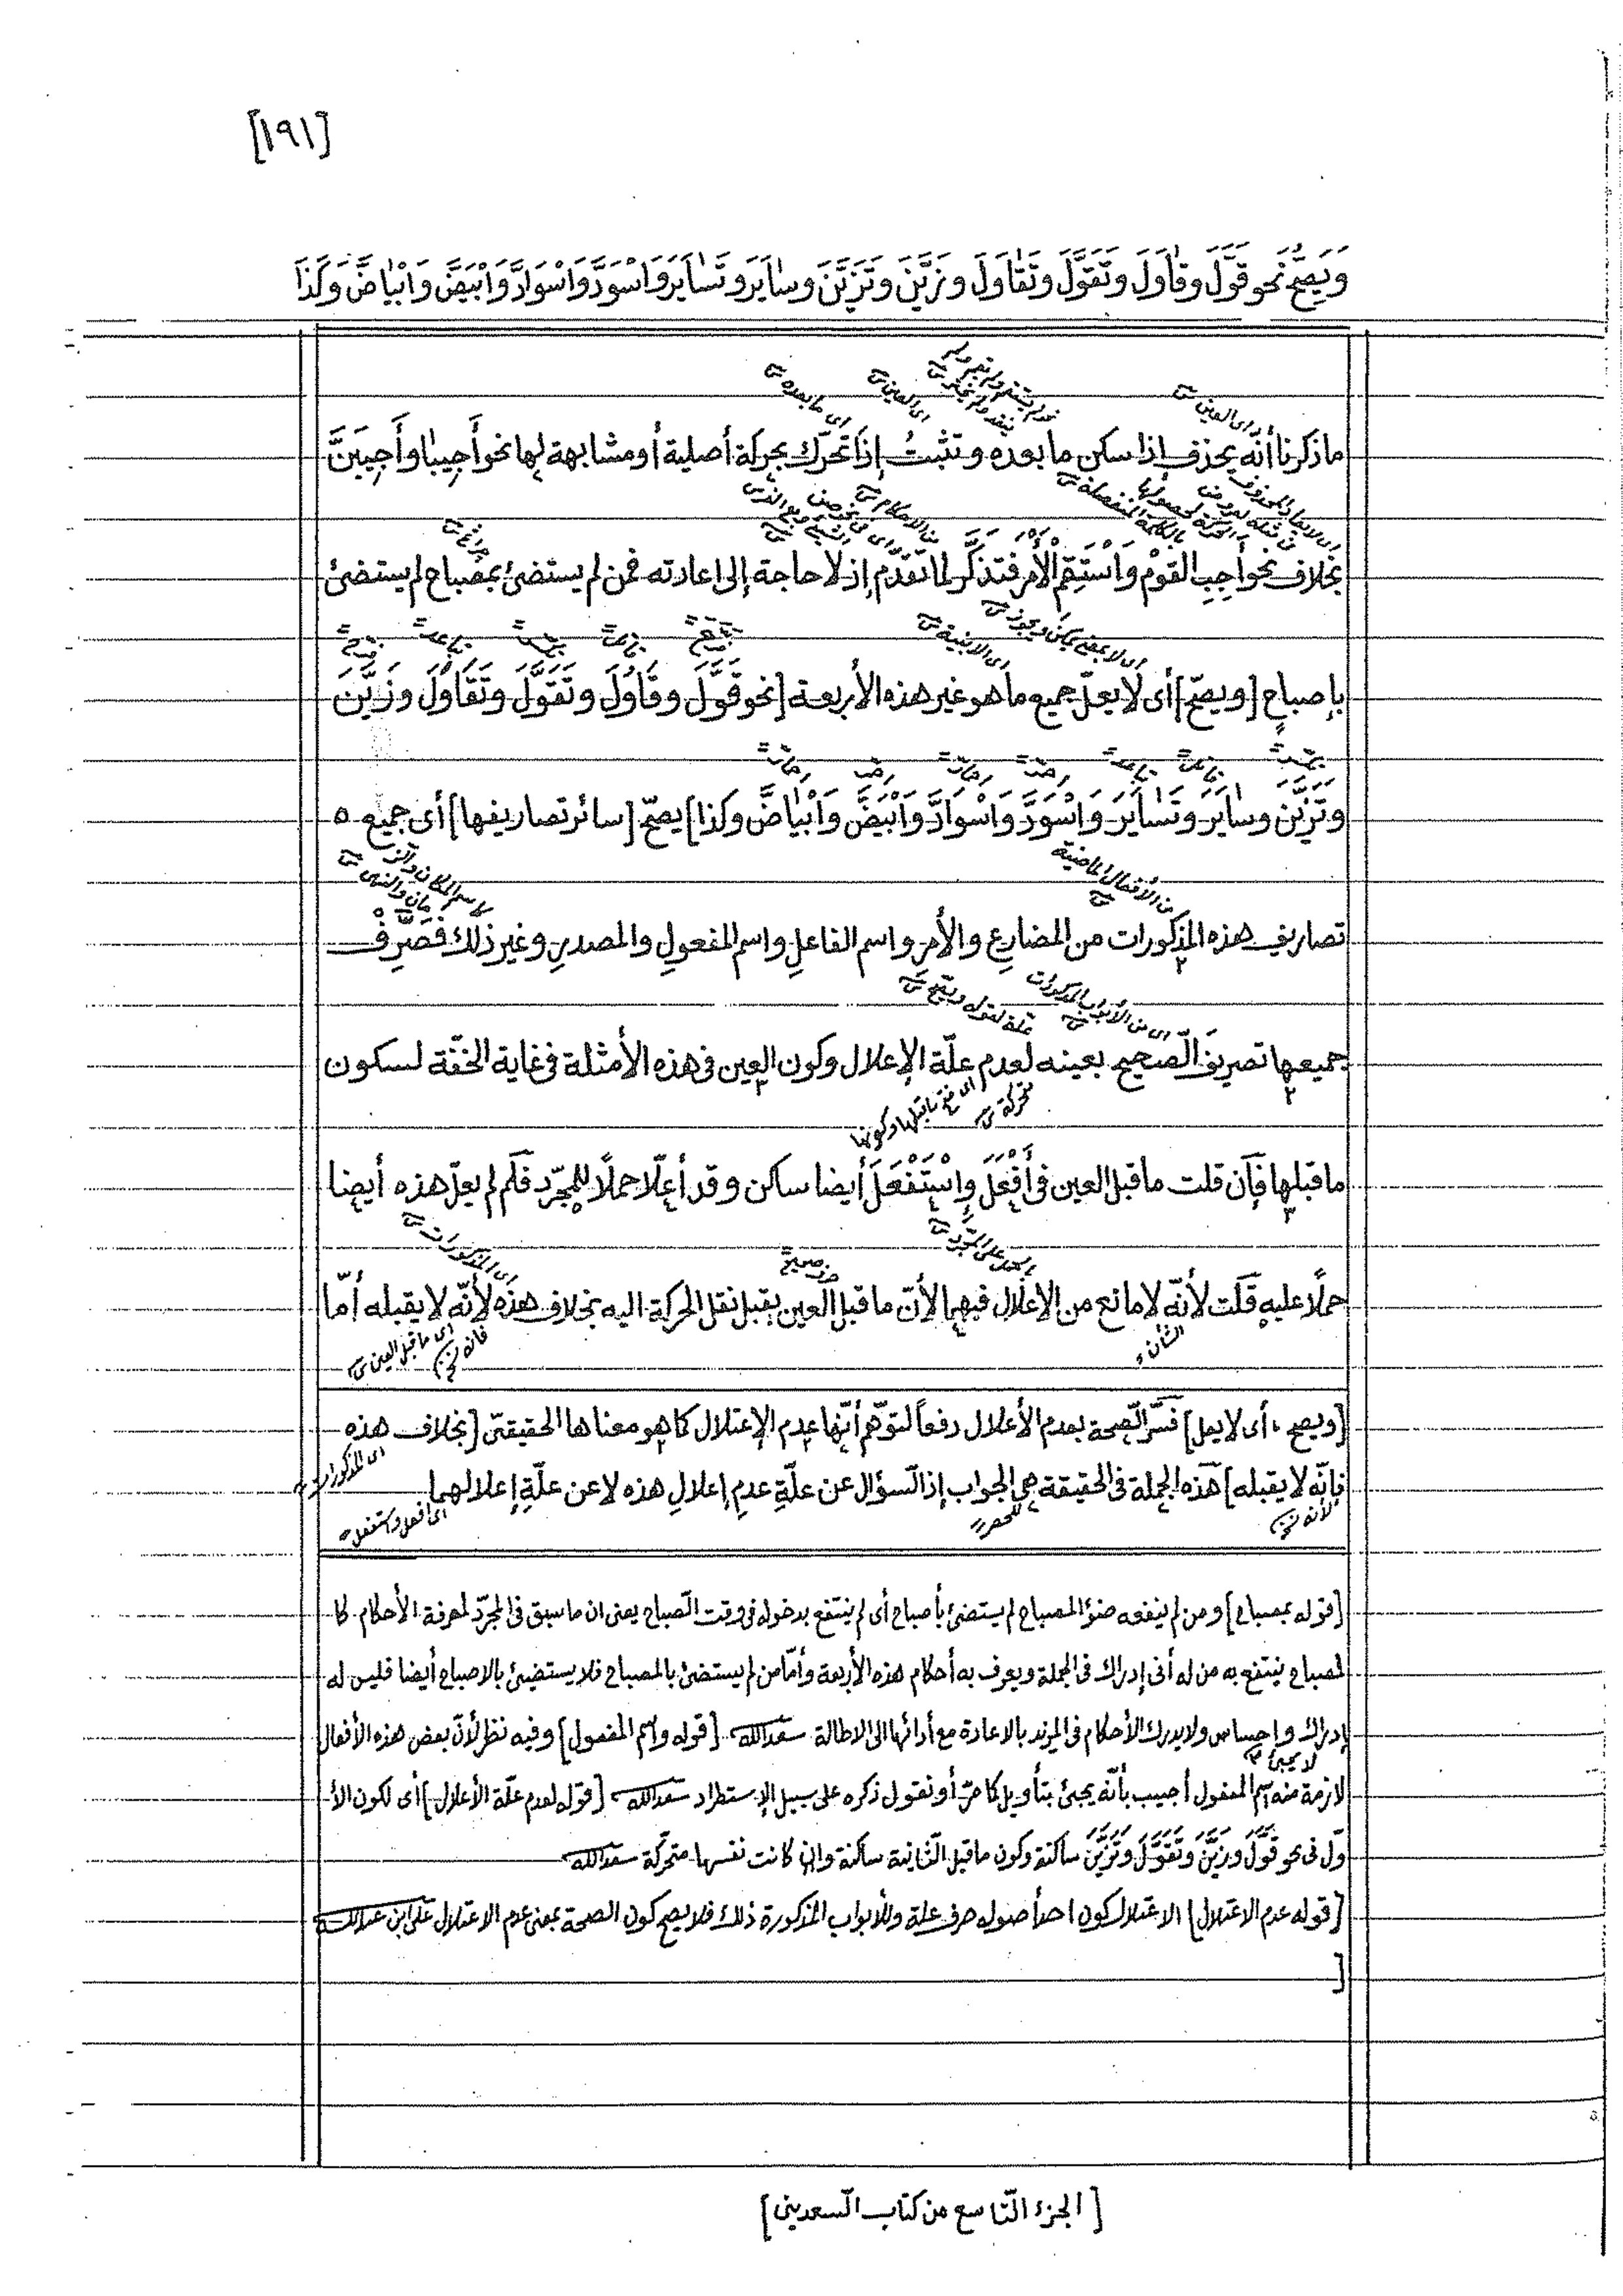 [١٩١]
وَيَصِحُّ نحو قَوَّلَ وقَاوَلَ وتَقَوَّلَ وتَقَاوَلَ وزَيَّنَ وتَزَيَّنَ وسَايَرَ وتَسَايَرَ وَاسْوَدَّ وَاسْوَادَّ وَابْيَضَّ وَابْيَاضَّ وَكَذَا
اى العين
اى العين
اى ما بعده
ما ذكرنا أنّه يحذف إذا سكن ما بعده وتثبتُ إذا تحرّك بحركة أصلية أو مشابهة لها نحو أَجِيبَا وأَجِيبَنَّ
بخلاف نحو أَجِبِ القومْ وَاسْتَقِمِ الأمر فتذكَّر لما تقدّم إذ لا حاجة إلى اعادته فمن لم يستضئ بمصباح لم يستضئ
اى الابنية
بإصباحٍ [ويصحّ] أى لا يعلّ جميع ما هو غير هذه الأربعة [نحو قَوَّلَ وقَاوَلَ وتَقَوَّلَ وتَقَاوَلَ وزَيَّنَ
وتَزَيَّنَ وسايَرَ وتَسَايَرَ وَاسْوَدَّ وَاسْوَادَّ وَابْيَضَّ وَابْيَاضَّ وكذا] يصحّ [سائر تصاريفها] أى جميع ٥
من الأفعال الماضية
تصاريف هذه المذكورات من المضارعِ والأمرِ واسم الفاعلِ واسم المفعولِ والمصدرِ وغير ذلك فَصَرِّفْ
اى من الأبواب المذكورات
علة لقوله ويصح
جميعها تصريفَ الصّحيح بعينه لعدم علّة الإعلال وكون العين فى هذه الأمثلة فى غاية الخفّة لسكون
اى فتح ما قبلها وكونها
متحركة
ما قبلها فإن قلت ما قبل العين فى أَفْعَلَ وإسْتَفْعَلَ أيضا ساكن وقد أعلّا حملًا للمجرّد فلم لم يعلّ هذه أيضا
اى المذكورات
حرف صحيح
حملًا عليه قلت لأنّه لا مانع من الإعلال فيهما لأنّ ما قبل العين يقبل نقل الحركة اليه بخلاف هذه لأنّه لا يقبله أمّا
الشأن
فانه
اى ما قبل العين
[ويصح، أى لا يعل] فسّر الصّحة بعدم الأعلال دفعاً لتوهّم أنّها عدم الإعتلال كما هو معناها الحقيقىّ [بخلاف هذه
اى المذكورات
فإنّه لا يقبله] هذه الجملة فى الحقيقة هى الجواب إذ السّؤال عن علّةِ عدمِ إعلالِ هذه لا عن علّةِ إعلالهما
لأنه
للحصر
اى افعل واستفعل
[قوله بمصباح] ومن لم ينفعه ضوْء المصباح لم يستضئ بأصباح أى لم ينتفع بدخوله فى وقت الصّباح يعنى ان ما سبق فى المجرّد لمعرفة الأحكام كا
لمصباح ينتفع به من له أنى إدراك فى الجملة ويعرف به أحكام هذه الأربعة وأمّا من لم يستضئ بالمصباح فلا يستضيئ بالاصباح أيضا فليس له
إدراك وإحساس ولا يدرك الأحكام فى المزيد بالاعادة مع أدائها الى الاطالة سعدالله [قوله واسم المفعول] وفيه نظر لأنّ بعض هذه الأفعال
لا يجيئ
لازمة منه اسم المفعول أجيب بأنّه يجيئ بتأويل كما مرّ أو نقول ذكره على سبيل الإستطراد سعدالله [قوله لعدم علّة الأعلال] أى لكون الأ
وّل فى نحو قَوَّلَ وزَيَّنَ وتَقَوَّلَ وتَزَيَّنَ ساكنة وكون ما قبل الثّانية ساكنة وان كانت نفسها متحرّكة سعدالله
[قوله عدم الاعتلال] الاعتلال كون احد أصوله حرف علة وللأبواب المذكورة ذلك فلا يصح كون الصحة بمعنى عدم الاعتلال على ابن عبدالله
[
[الجزء التّاسع من كتاب السّعدينى]